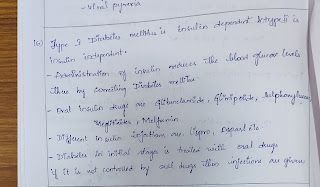 - Viral pyrexia
10) Type I Diabetes mellitus is Insulin dependent & type II is
insulin independent.
- Administration of insulin reduces the blood glucose levels
thus by controlling Diabetes mellitus
- Oral Insulin drugs are Glibenclamide, Glipizide, Sulphonylureas,
Meglitinides, Metformin
- Different insulin injections are Lispro, Aspart etc
- Diabetes in initial stages is treated with oral drugs
if it is not controlled by oral drugs then injections are given